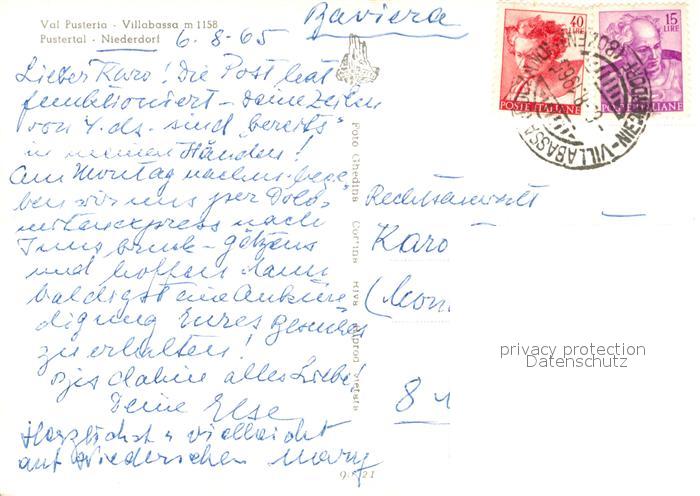 Val Pusteria - Villabassa m 1158
Pustertal - Niederdorf
Baviera
6.8.65
Lieber Karo! Die Post hat
funktioniert - deine Zeilen
von 4. ds. sind "bereits"
in meinen Händen!
Am Montag nachm. bege-
ben wir uns per Dolo-
mitenexpress nach
Innsbruck - Götzens
und hoffen dann
baldigst eine Ankün-
digung Eures Besuches
zu erhalten!
Bis dahin alles Liebe!
Deine Else
Herzlichst u vielleicht
auf Wiedersehen
Foto Ghedina Cortina Riva
40
LIRE
POSTE ITALIANE
15
LIRE
POSTE ITALIANE
VILLABASSA
Rechtsanwalt
Karo
8
privacy protection
Datenschutz